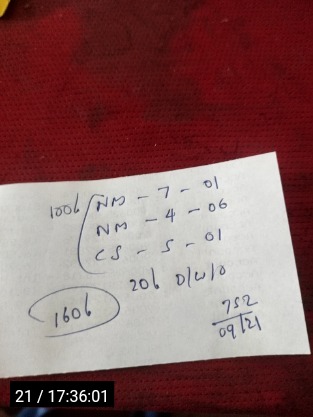 100b NM - 7 - 01
NM - 4 - 06
CS - 5 - 01
20b D/W/O
160b
752
09/21
21 / 17:36:01